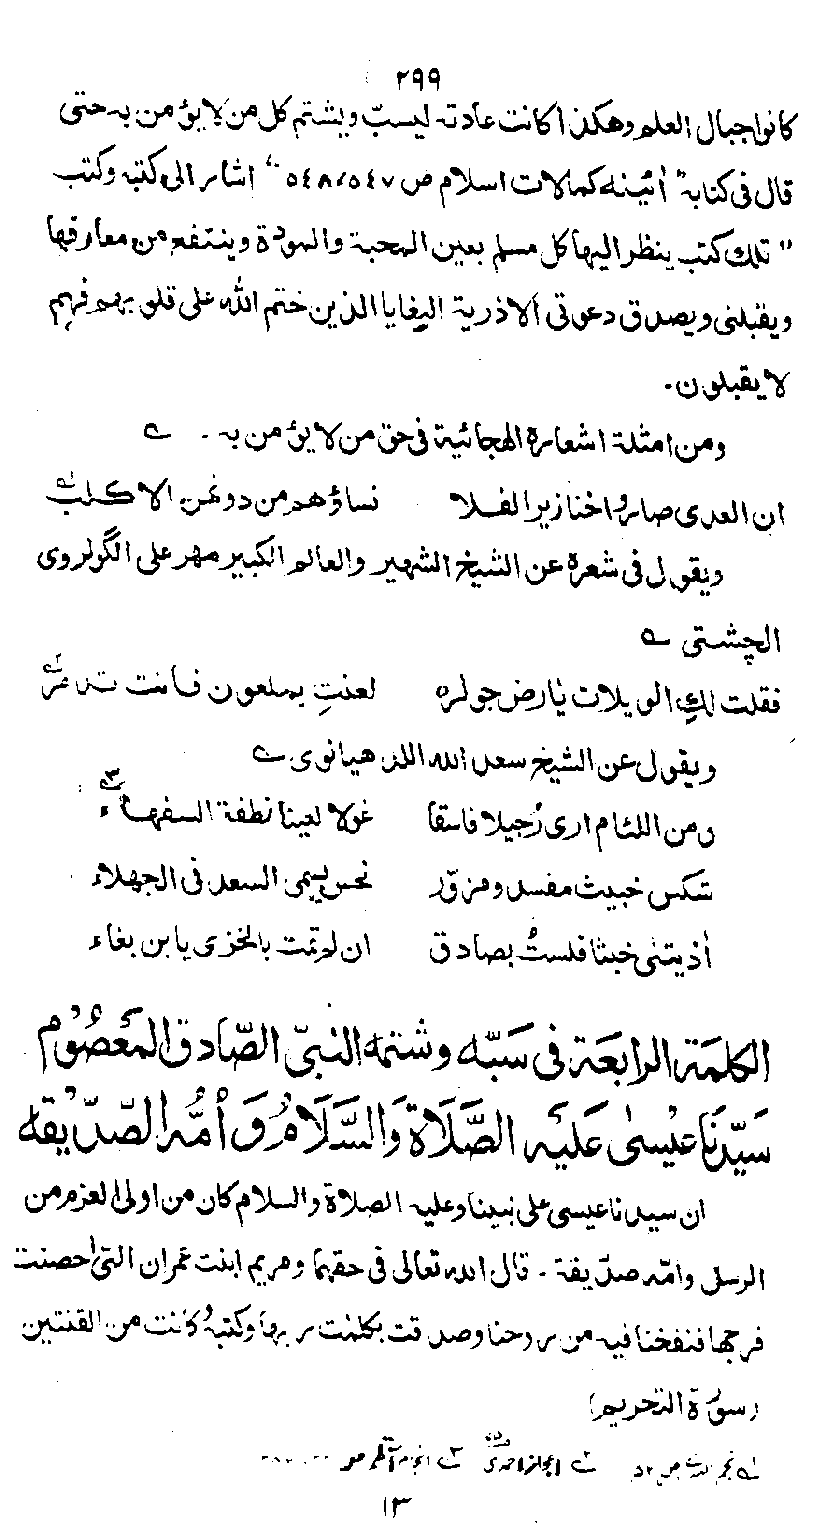 ٢٩٩
كانوا جبال العلم وهكذا كانت عادته ليسبّ ويشتم كل من لا يؤمن به حتى
قال فى كتابه" آئينه كمالات اسلام ص ٥٤٨،٥٤٧" اشار الى كتبه وكتب
" تلك كتب ينظر اليها كل مسلم بعين المحبة والمودة وينتفع من معارفها
ويقبلنى ويصدق دعوتى الا ذرية البغايا الذين ختم الله على قلوبهم فهم
لا يقبلون.
ومن امثلة اشعاره الهجائية فى حق من لا يؤمن به.
ان العدى صاروا خنازير الفلا نساؤهم من دونهن الاكلب
ويقول فى شعره عن الشيخ الشهير والعالم الكبير مهر على الگولروى
الچشتى
فقلت لكِ الويلات يا ارض جولره لعنتِ بملعون فانت تدمر
ويقول عن الشيخ سعد الله اللدهيانوى
ومن اللئام ارى رُجيلا فاسقا غولا لعينا نطفة السفهاء ٣
شكس خبيث مفسد ومزوّر نحس يسمى السعد فى الجهلاء
أذيتنى خبثا فلستُ بصادق ان لم تمت بالخزى يا ابن بغاء
الكلمة الرابعة فى سَبّه وشتمه النبىّ الصّادق المَعصُوم
سَيّدنَا عيْسىٰ عَليَه الصَّلَاة وَالسَّلَامُ وَ أمُّه الصّدّيقه
ان سيدنا عيسى على نبينا وعليه الصلاة والسلام كان من اولى العزم من
الرسل وامّه صدّيقة. قال الله تعالى فى حقهما ومريم ابنت عمران التى احصنت
فرجها فنفخنا فيه من روحنا وصدقت بكلمٰت ربها وكتبهٖ وكانت من القنتين
(سورة التحريم)
نجم الهدى ص اعجاز احمدى ٣ انجام آتهم ص
١٣